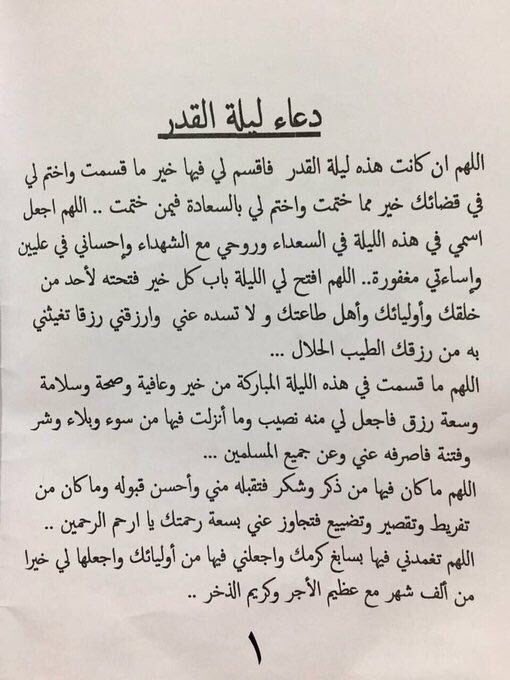 دعاء ليلة القدر
اللهم ان كانت هذه ليلة القدر فاقسم لي فيها خير ما قسمت واختم لي
في قضائك خير مما ختمت واختم لي بالسعادة فيمن ختمت .. اللهم اجعل
اسمي في هذه الليلة في السعداء وروحي مع الشهداء وإحساني في عليين
وإساءتي مغفورة.. اللهم افتح لي الليلة باب كل خير فتحته لأحد من
خلقك وأوليائك وأهل طاعتك و لا تسده عني وارزقني رزقا تغيثني
به من رزقك الطيب الحلال ...
اللهم ما قسمت في هذه الليلة المباركة من خير وعافية وصحة وسلامة
وسعة رزق فاجعل لي منه نصيب وما أنزلت فيها من سوء وبلاء وشر
وفتنة فاصرفه عني وعن جميع المسلمين ...
اللهم ماكان فيها من ذكر وشكر فتقبله مني وأحسن قبوله وماكان من
تفريط وتقصير وتضييع فتجاوز عني بسعة رحمتك يا ارحم الرحمين ..
اللهم تغمدني فيها بسابغ كرمك واجعلني فيها من أوليائك واجعلها لي خيرا
من ألف شهر مع عظيم الأجر وكريم الذخر ..
١